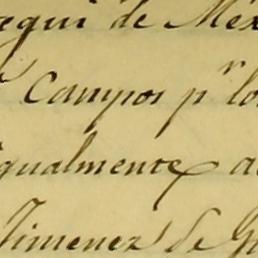 egui de Méx
Campos pr lo
igualmente a
Jimenez de G